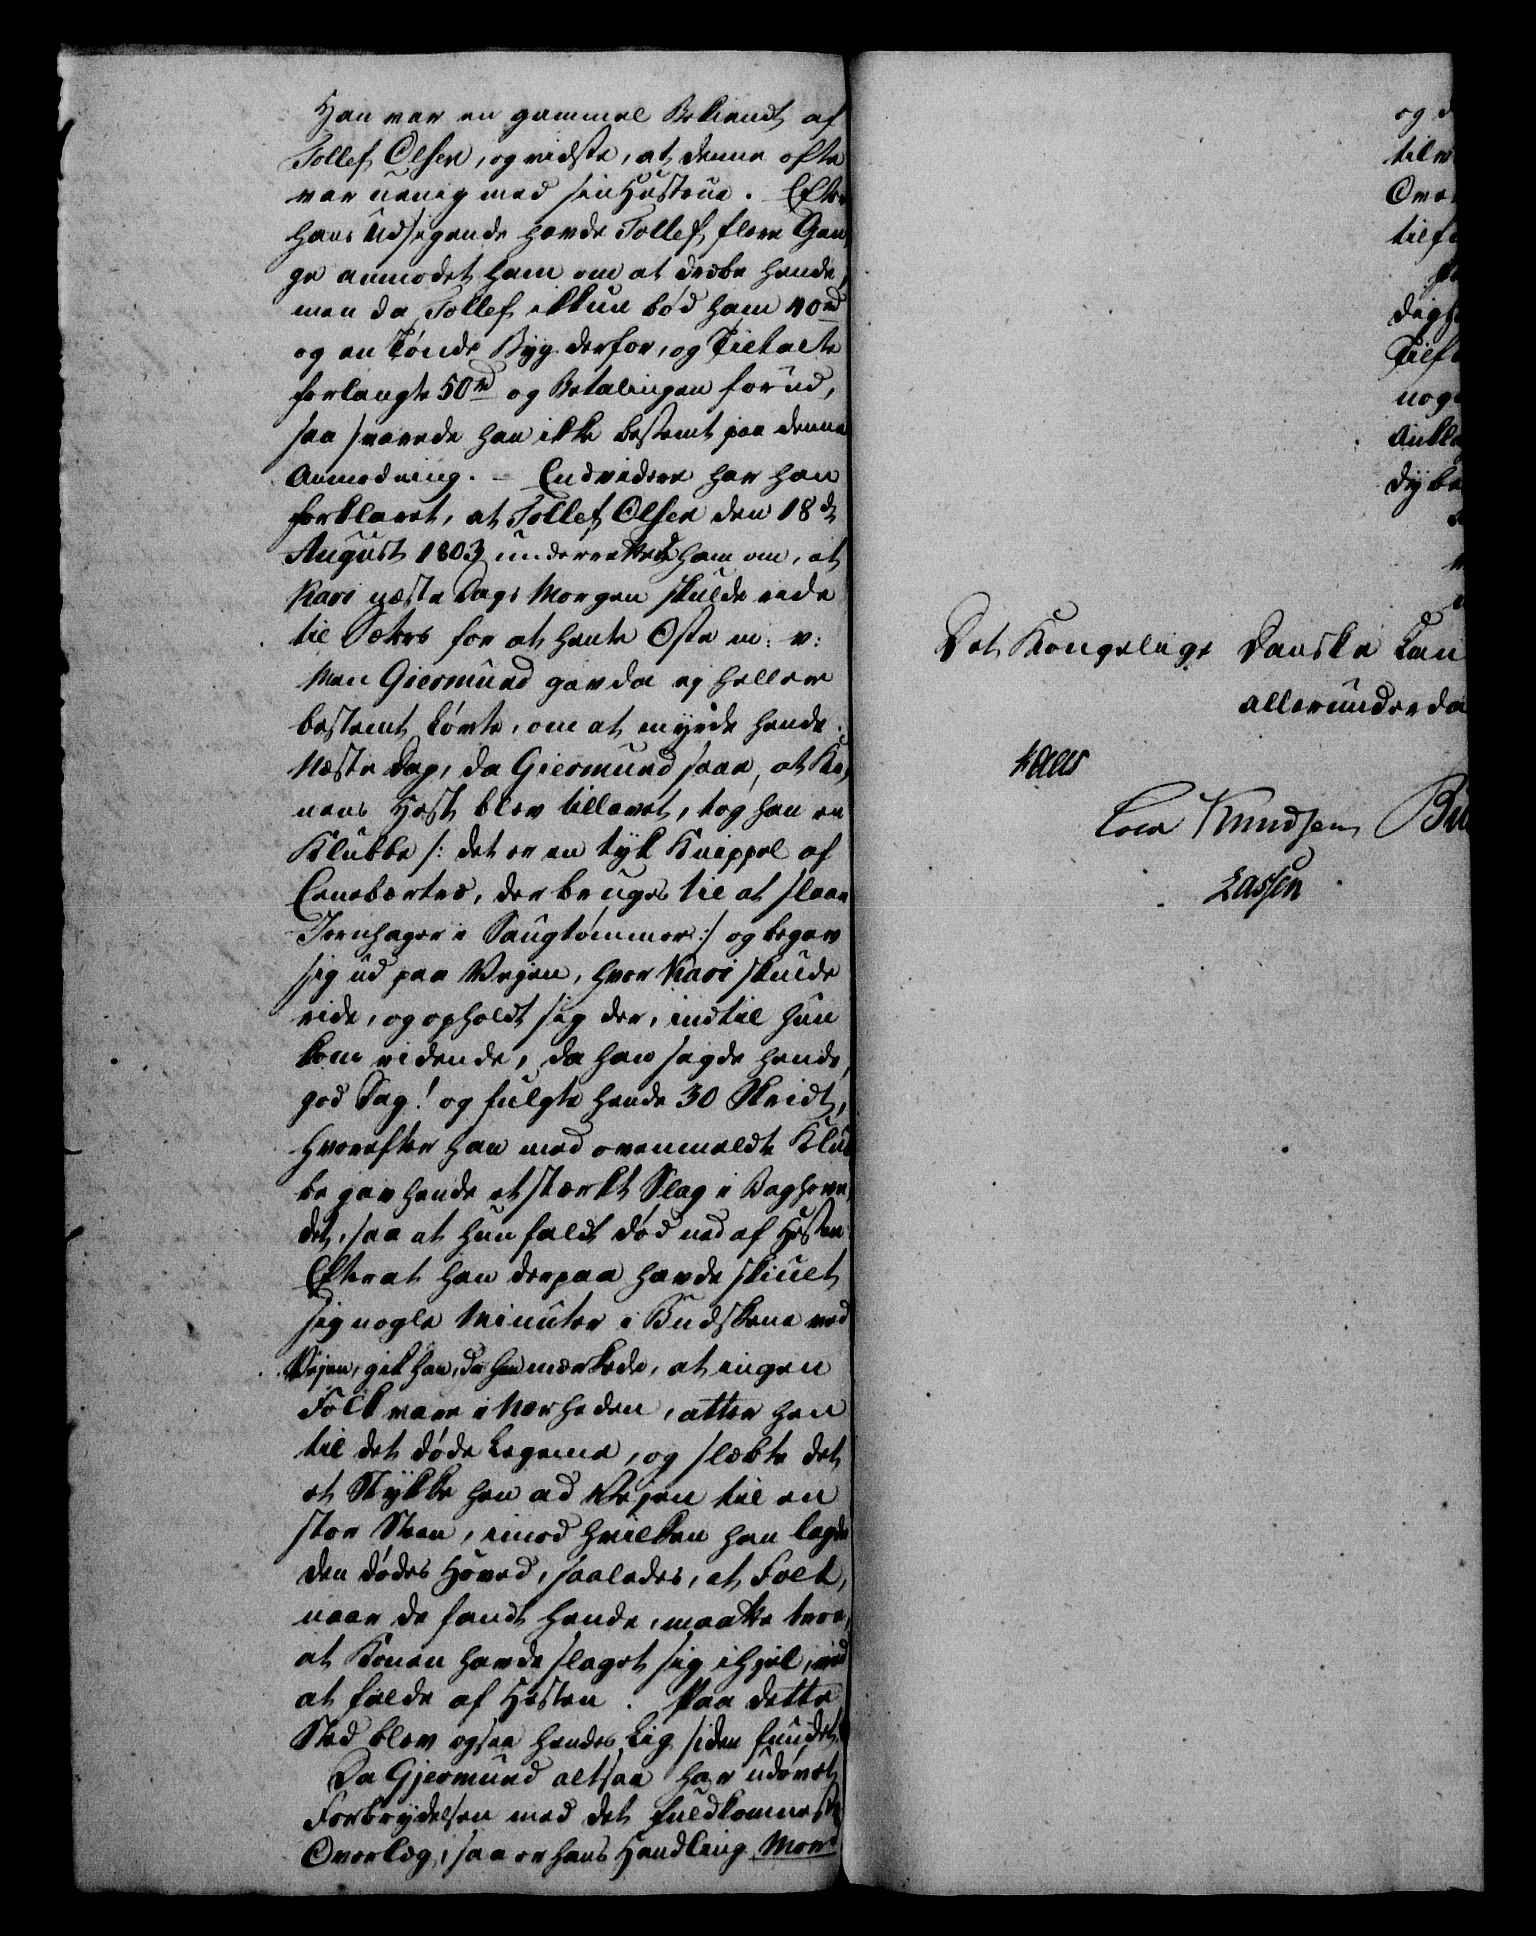 Han var en gammel Bekiendt af
Tollef Olsen, og vidste, at denne ofte
var uenig med sin Hustrue. Efter
hans Udsigende havde Tollef flere Gan
ge anmodet ham om at dræbe hende,
men da Tollef ikkun bød ham 40 rd
og en Tønde Byg derfor, og Tiltalte
forlangte 50 rd og Betalingen forud,
saa svarede han ikke bestemt paa denne
Anmodning. – Endvidere har han
forklaret, at Tollef Olsen den 18de
August 1803 underrettede ham om, at
Kari næste Dags Morgen skulde ride
til Sæters for at hente Oste m: v:
Men Giermund gav da ej heller
bestemt Løvte, om at myrde hende.
Næste Dag, da Giermund saae, at Ko,
nens Hest blev tillavet, tog han en
Klubbe /: det er en tyk Knippel af
Enebærtræ, der bruges til at slaae
Jernhager i Saugtømmer :/ og begav
sig ud paa Vejen, hvor Kari skulde
ride, og opholdt sig der, indtil hun
kom ridende, da han sagde hende,
god Dag! og fulgte hende 30 Skridt,
hvorefter han med ovenmeldte Klub
be gav hende et stærkt Slag i Baghove,
det, saa at hun faldt død ned af Hesten
Efterat han derpaa havde skiult
sig nogle Minuter i Buskene ved
Vejen, gik han, da han mærkede, at ingen
Folk vare i Nærheden, atter hen
til det døde Legeme, og slæbte det
et Stykke hen ad Vejen til en
stor Steen, imod hvilken han lagde
den dødes Hoved, saaledes, at Folk,
naar de fandt hende, maatte troe,
at Konen havde slaget sig ihjel, ved
at falde af Hesten. Paa dette
Sted blev ogsaa hendes Lig siden fundet.
Da Gjermund altsaa har udøvet
Forbrydelsen med det fuldkomneste
Overlæg, saa er hans Handling Mord
og
til
Over
tilf
digh
Tilf
nog
Ankla
dybe
Det Kongelige Danske Can
allerunderda
Kaas
Cold Knudsen Bü
Lassen